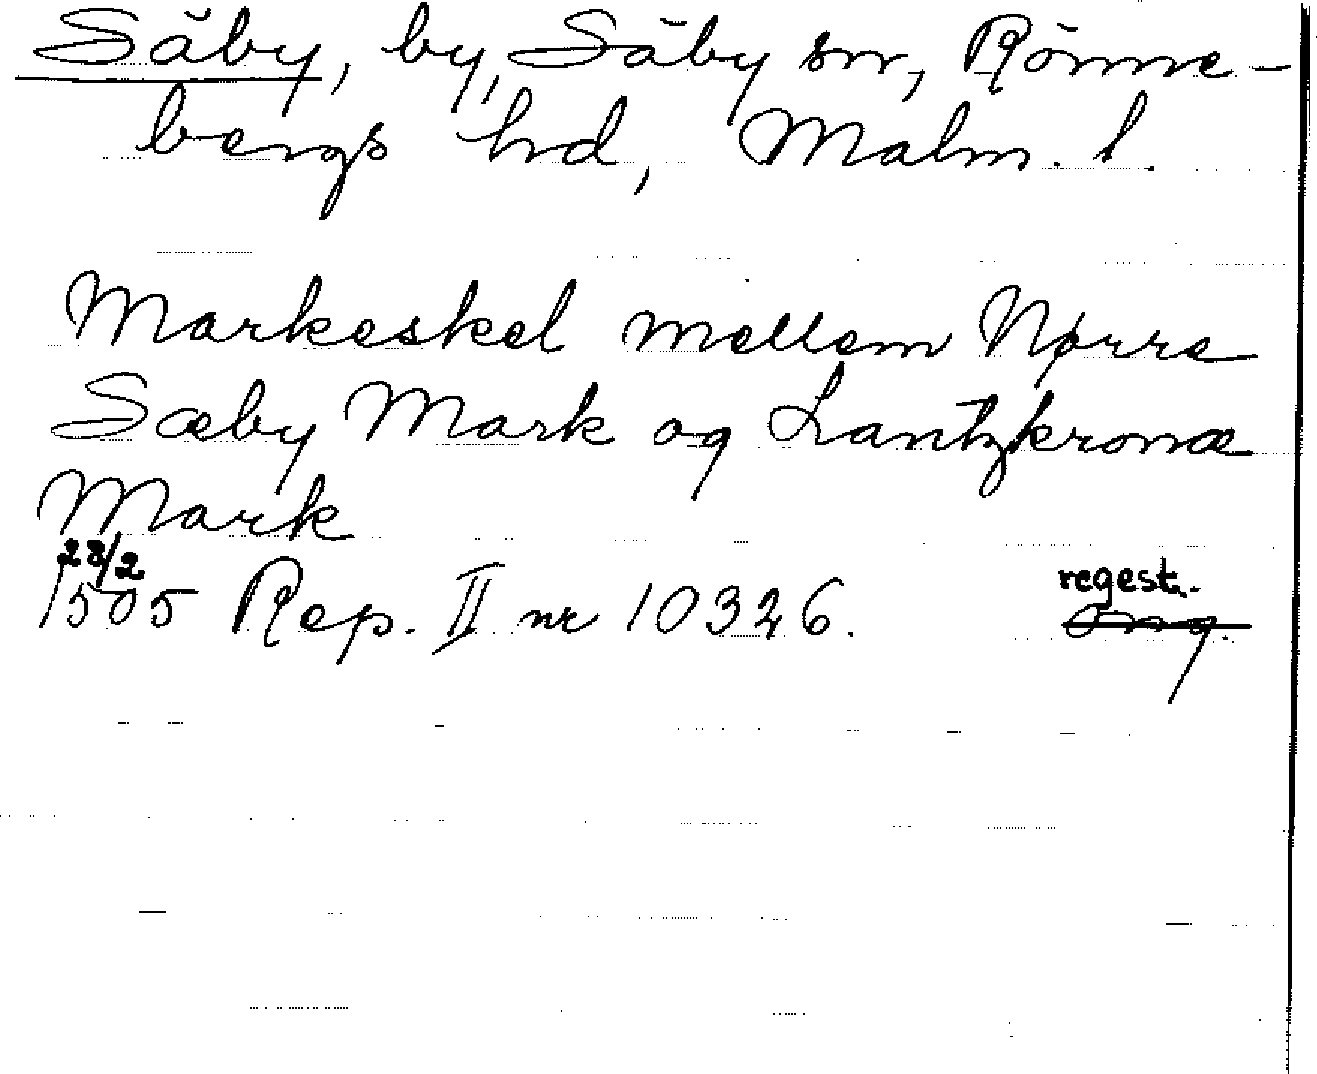 Säby, by, Säby sn, Rönne-
bergs hd, Malm. l.
Markeskel mellem Nørre
Sæby Mark og Lantzkronæ
Mark
23/2
1505 Rep. II nr 10326.
regest.